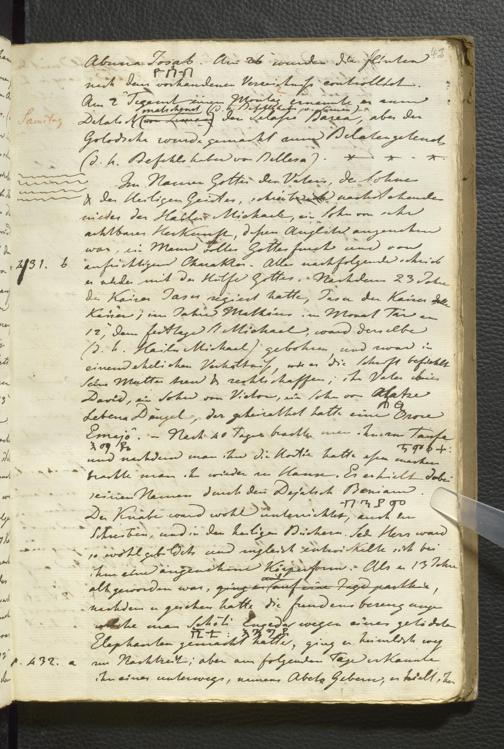 43
Abuna Josab. Am 26 wurden die Flinten
nach dem vorhandenen Verzeichniss controllirt.
Am 2 Tegemt
Samstag
Detatsch den Selafie Barea, aber den
Golodsche wurde gemacht zum Belatengeta
(d. h. Befehlshaber von Bellesa). * - * - *
Im Namen Gottes des Vaters, des Sohnes
& des Heiligen Geistes, schrieb nachstehendes
nieder der Hailu Michael, ein Sohn von sehr
achtbarer Herkunft, dessen Antlitz angenehm
war, ein Mann voller Gottesfurcht und von
431. b
aufrichtigem Charakter. Alles nachfolgende schrieb
er nieder mit der Hilfe Gottes. Nachdem 23 Jahre
der Kaiser Jasu regiert hatte, Jasu der Kaiser der
Kaiser; im Jahre Mathäus im Monat Tar am
12, dem Festtage St Michael, ward derselbe
(d. h. Hailu Michael) geboren, und zwar in
einem ehelichen Verhältniss, wie es die Schrift befiehlt
Seine Mutter treu & rechtschaffen; ihr Vater hies
David, ein Sohn von Victor, ein Sohn von
Lebena Dengel, der geheirathet hatte eine Orore
Emajö. - Nach 40 Tagen brachte man ihn zur Taufe
und nachdem man ihn die Hostie hatte essen machen
brachte man ihn wieder zu Hause. Er erhielt dabei
seinen Namen durch den Dejatsch Beniam.
Der Knabe ward wohl unterrichtet, auch im
Schreiben, und in den heiligen Büchern. Sein Herz ward
so wohl gebildet und zugleich entwickelte sich bei
ihm eine angenehme Körperform. Als er 13 Jahre
alt geworden war, ging er auf eine Jagdparthie,
nachdem er gesehen hatte die Freudensbezeugungen
welche man Schiti Engeda wegen eines getödteten
Elephanten gemacht hatte, ging er heimlich weg
432. a
zur Nachtzeit; aber am folgenden Tage erkannte
ihn einer unterwegs, namens Abeto Gebern; er hielt ihn